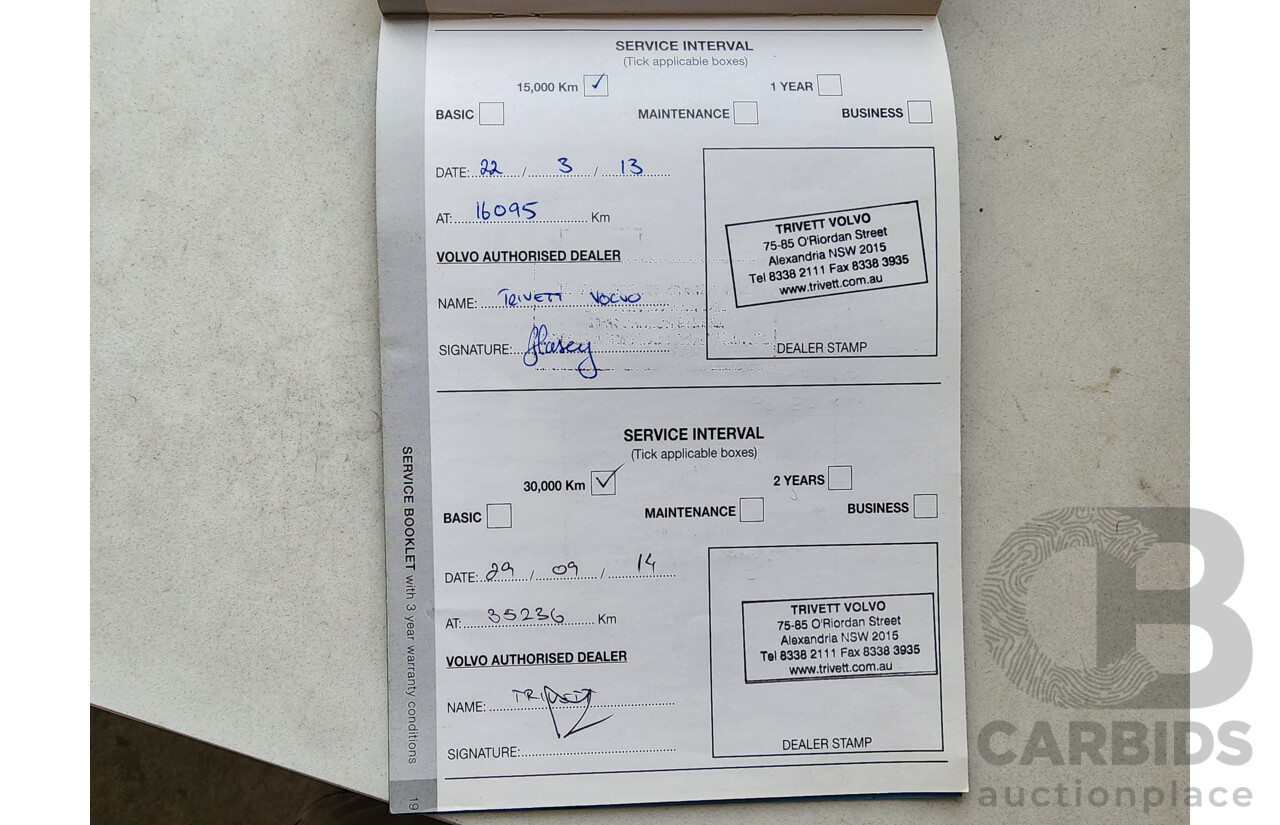 SERVICE INTERVAL
(Tick applicable boxes)
15,000 Km ✓ 1 YEAR
BASIC MAINTENANCE BUSINESS
DATE: 22 / 3 / 13
AT: 16095 Km
VOLVO AUTHORISED DEALER
NAME: TRIVETT VOLVO
SIGNATURE:
TRIVETT VOLVO
75-85 O'Riordan Street
Alexandria NSW 2015
Tel 8338 2111 Fax 8338 3935
www.trivett.com.au
DEALER STAMP
SERVICE INTERVAL
(Tick applicable boxes)
30,000 Km ✓ 2 YEARS
BASIC MAINTENANCE BUSINESS
DATE: 29 / 09 / 14
AT: 35236 Km
VOLVO AUTHORISED DEALER
NAME: TRIVETT
SIGNATURE:
TRIVETT VOLVO
75-85 O'Riordan Street
Alexandria NSW 2015
Tel 8338 2111 Fax 8338 3935
www.trivett.com.au
DEALER STAMP
SERVICE BOOKLET with 3 year warranty conditions
19
CB
CARBIDS
auctionplace